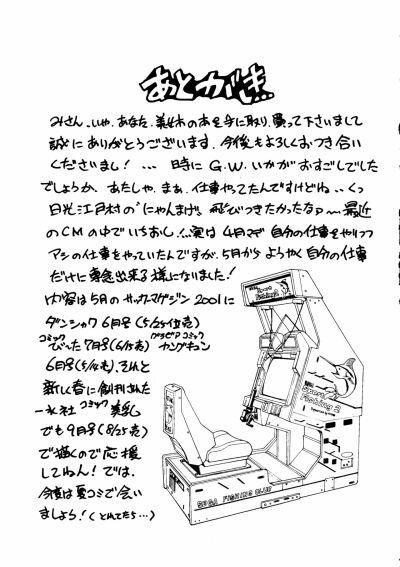 あとがき
みさん、いや、あなた、義姉の本を手に取り、買って下さいまして
誠にありがとうございます。今後もよろしくおつき合い
くださいまし! ... 時に G.W. いかがおすごしでした
でしょうか、あたしゃ、まぁ、仕事やってたんですけどね..くっ
日光江戸村の"にゃんまげ"に飛びつきたかったなァ〜最近
のCMの中でいちおし!実は4月まで自分の仕事をやりつつ
アシの仕事をやっていたんですが、5月からようやく自分の仕事
だけに専念出来る様になりました!
内容は5月のサッカーマガジン2001に
ダンシャク6月号(5/25位売)
コミック びーた7月号(6/15売) グラビアコミック ヤングキュン
6月号(5/14も)、それと
新しく春に創刊された
一水社 コミック 美乳
でも9月号(8/25売)
で描くので応援
してねん!では、
今度は夏コミで会い
ましょう!(とれてたら...)
Sports Fishing 2
Sports
Fishing 2
SEGA FISHING CLUB